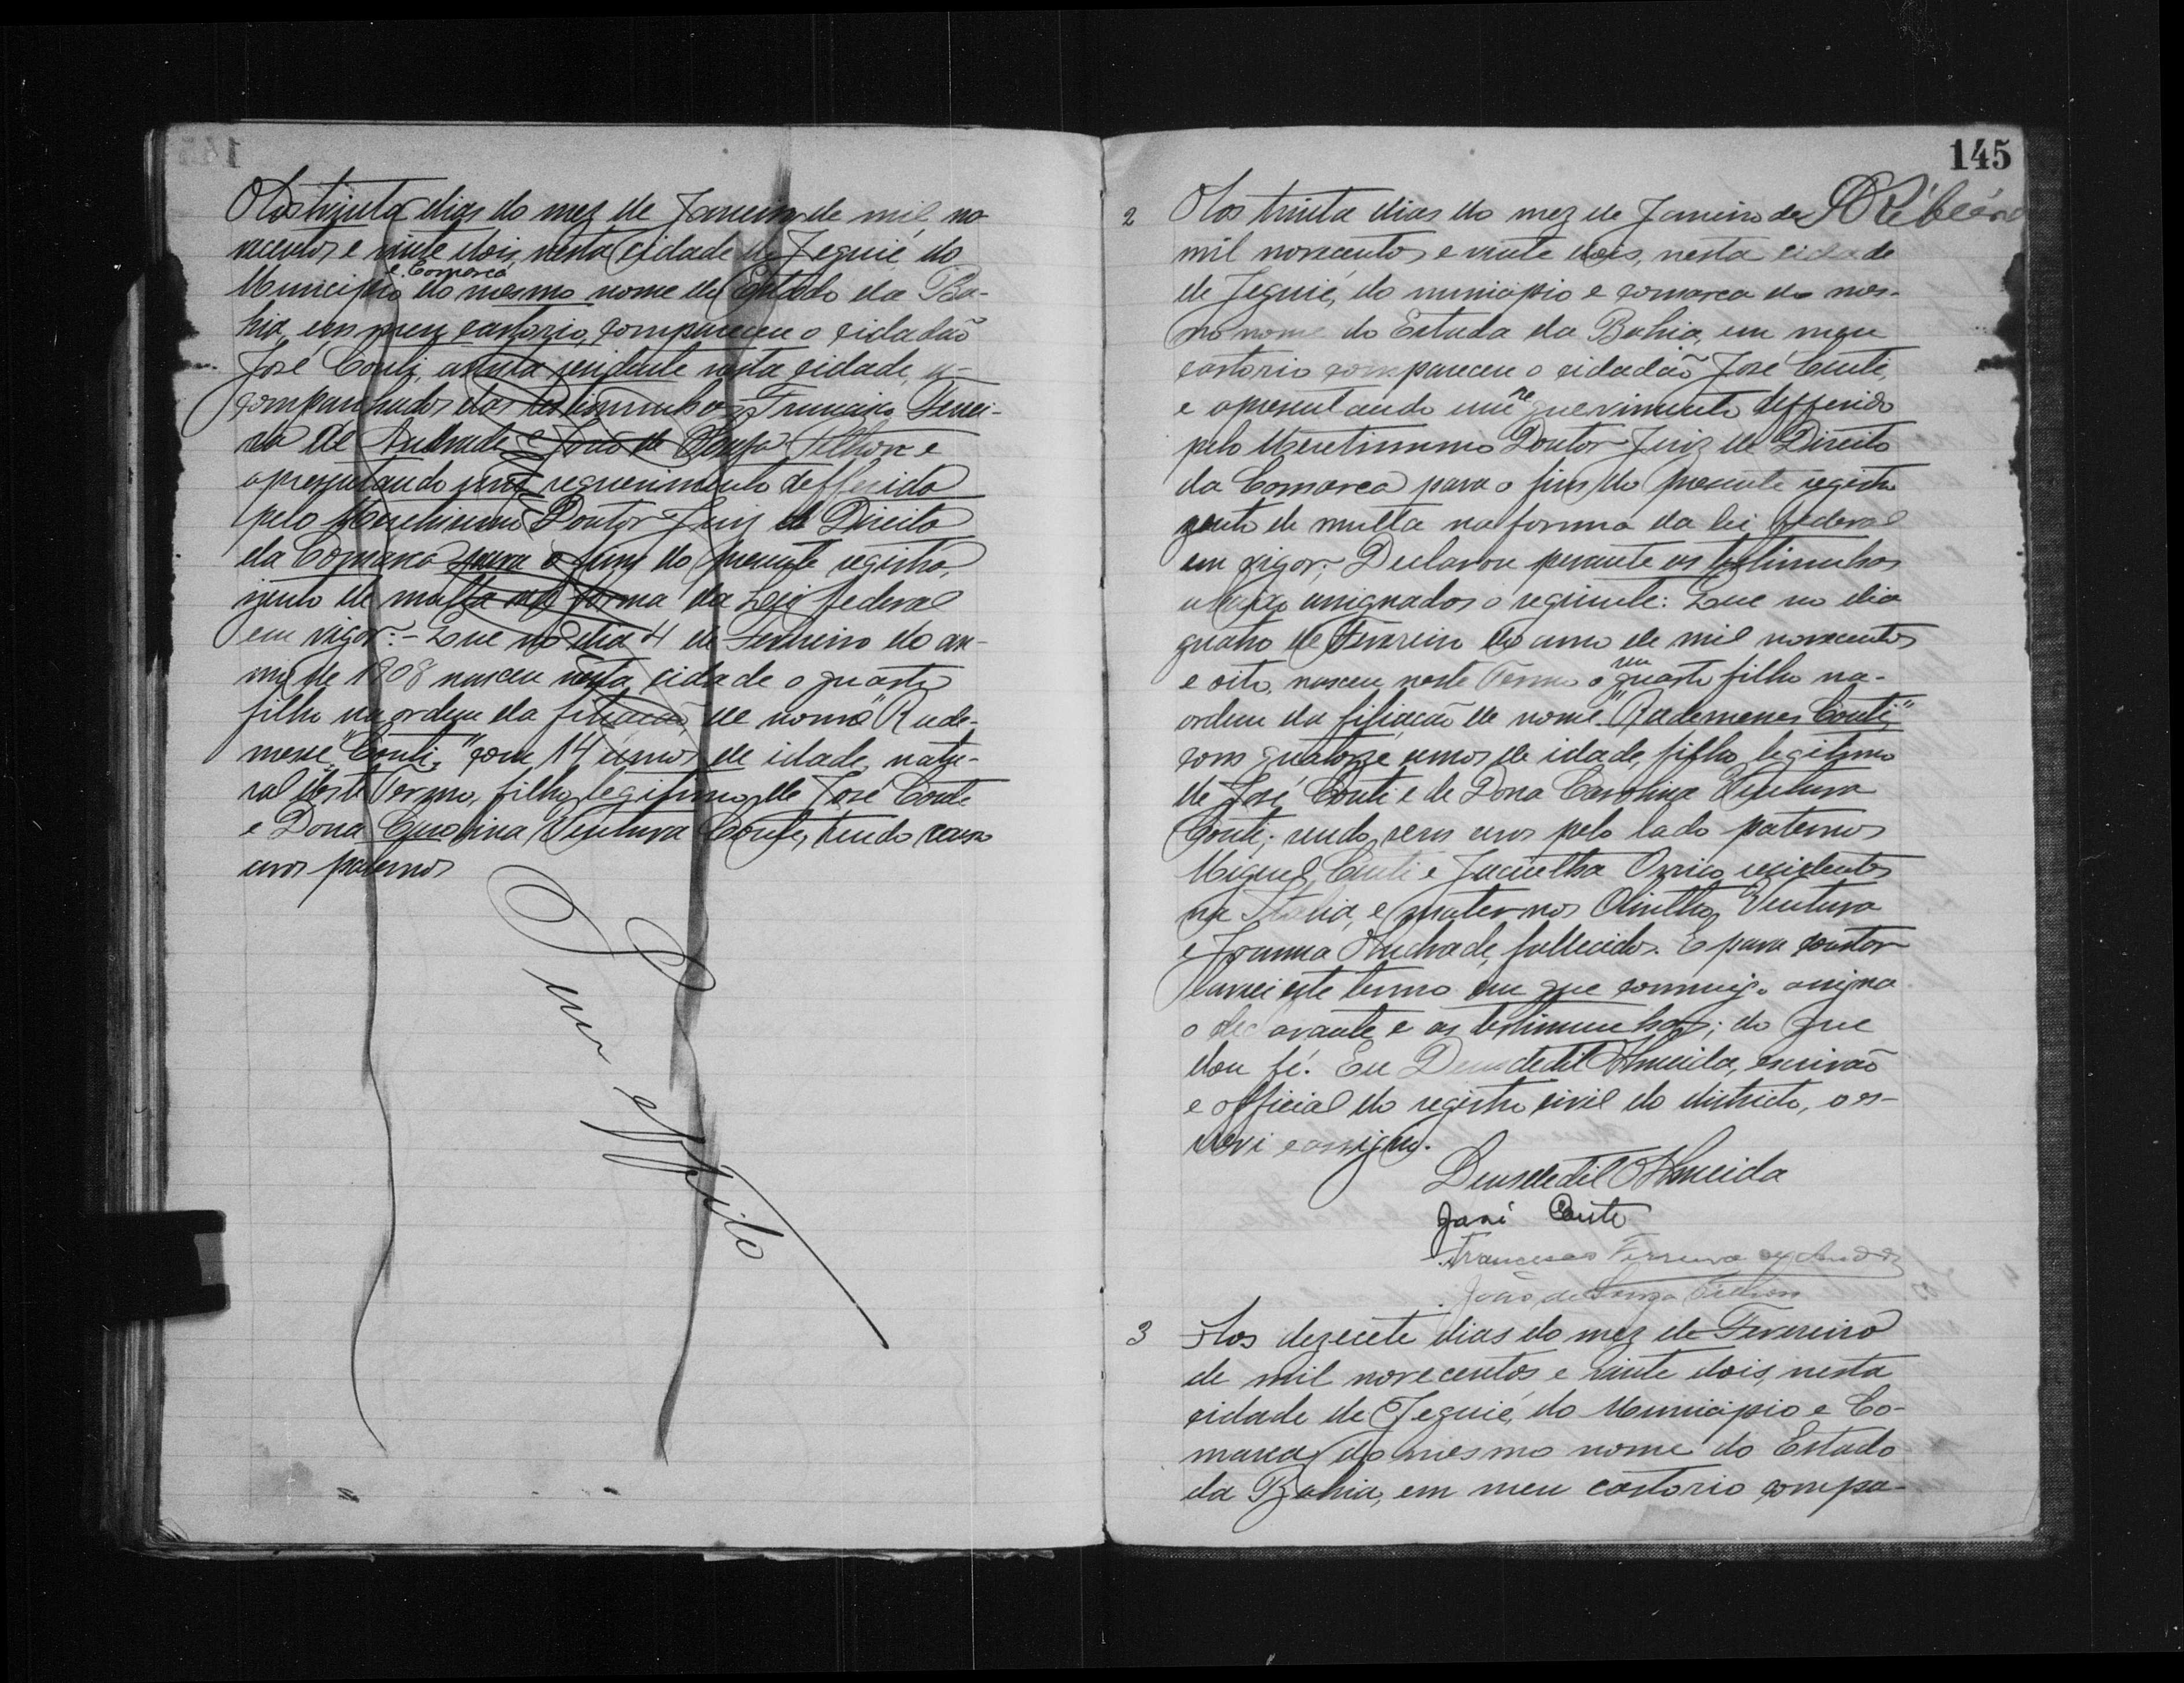 Aos trinta dias do mez de Janeiro de mil no-
vecentos e vinte dois, nesta cidade de Jequié, do
e Comarca
Municipio do mesmo nome do Estado da Ba-
hia, em meu cartorio, compareceu o cidadão
José Conti, residente nesta cidade, a-
companhados das testimunhas Francisco Ferrei-
ra de Andrade e João de Souza e
apresentando um requerimento defferido
pelo Meretissimo Doutor Juiz de Direito
da Comarca para o fim do presente registro,
izento de multa na forma da Lei federal
em vigor: - Que no dia 4 de Fevereiro do an-
no de 1908 nasceu nesta cidade o quarto
filho na ordem da filiação, de nome "Rade-
mese Conti," com 14 annos de idade, natu-
ral deste Termo, filho legitimo de José Conte
e Dona Carolina Ventura Conte, tendo como
avos paternos
Sem effeito
145
2 Aos trinta dias do mez de Janeiro de
mil novecentos e vinte dois, nesta cidade
de Jequié, do municipio e comarca do mes-
mo nome do Estado da Bahia, em meu
cartorio compareceu o cidadão José Conti,
re
e apresentando um querimento defferido
pelo Meretissimo Doutor Juiz de Direito
da Comarca para o fim do presente registro
zento de multa na forma da lei federal
em vigor; Declarou perante as testimunhas
abaixo assignados o seguinte: Que no dia
quatro de Fevereiro do anno de mil novecentos
seu
e oito, nasceu neste Termo o quarto filho na-
ordem da filiação de nome "Rademenes Conti,"
com quatorze annos de idade, filho legitimo
de José Conti e de Dona Carolina Ventura
Conti; sendo seus avos pelo lado paternos
Miguel Conti e Jacintha Orrico residentes
na Italia, e maternos Olintho Ventura
e Joanna Andrade, fallecidos. E para constar
lavrei este termo em que commigo assigna
o declarante e as testimunhas; do que
dou fé. Eu Deusdedit Almeida, escrivão
e official do registro civil do districto, o es-
crevi e assigno.
Deusdedit Almeida
José Conte
Francisco Ferreira de Andrade
João de Souza
3 Aos dezecete dias do mez de Fevereiro
de mil novecentos e vinte dois, nesta
cidade de Jequié, do Municipio e Co-
marca do mesmo nome do Estado
da Bahia, em meu cartorio compa-